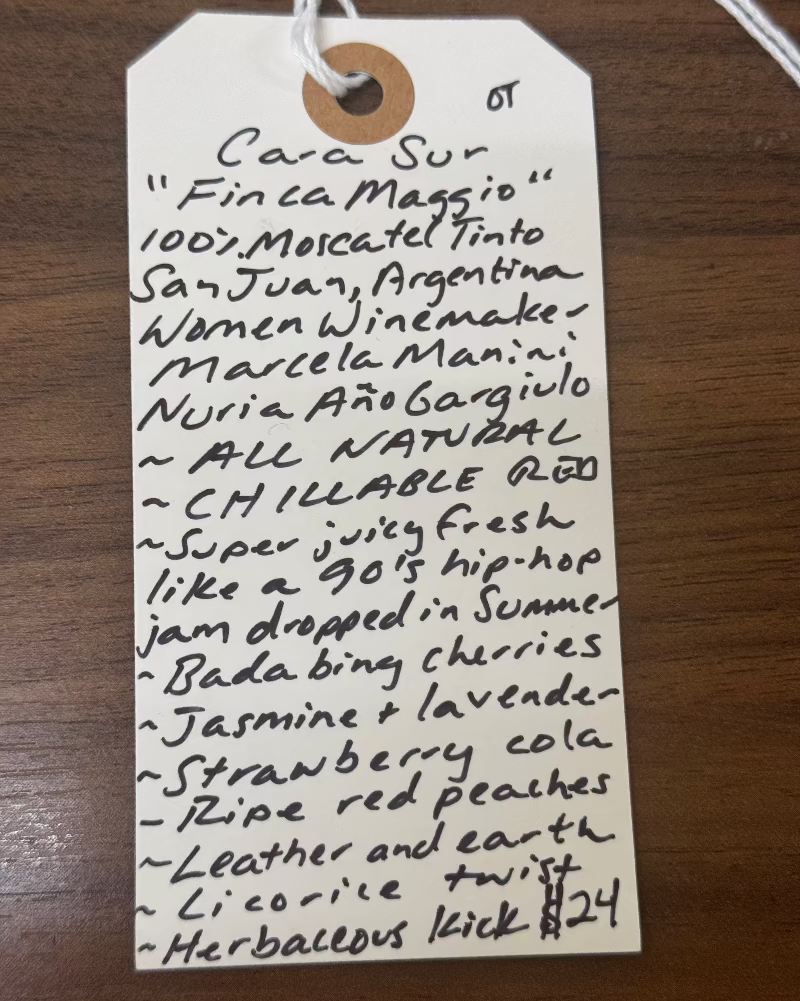 OT
Cara Sur
"Finca Maggio"
100% Moscatel Tinto
San Juan, Argentina
Women Winemaker
Marcela Manini
Nuria Año Gargiulo
~ ALL NATURAL
~ CHILLABLE RED
~Super juicy fresh
like a 90's hip-hop
jam dropped in Summer
~Bada bing cherries
~Jasmine + lavender
~Strawberry cola
- Ripe red peaches
~Leather and earth
~ Licorice twist
~Herbaceous Kick $24